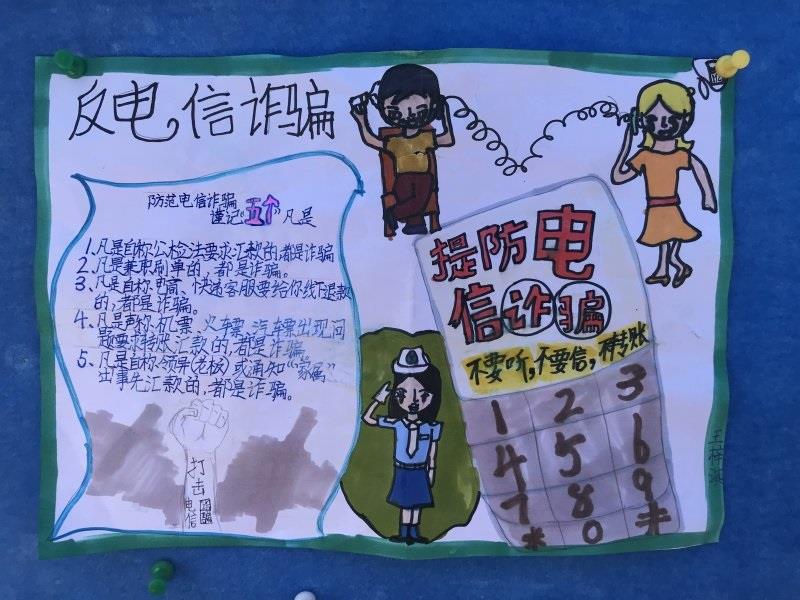 反电信诈骗
防范电信诈骗
谨记"五个"凡是
1、凡是自称公检法要求汇款的,都是诈骗
2、凡是兼职刷单的,都是诈骗。
3、凡是自称电商,快递客服要给你线下退款
的,都是诈骗。
4、凡是声称机票、火车票、汽车票出现问
题要求转账汇款的,都是诈骗。
5、凡是自称领导(老板)或通知"家属"
出事先汇款的,都是诈骗。
打击
电信诈骗
提防电
信诈骗
不要听,不要信,不转账
1 2 3
4 5 6
7 8 9
* 0 #